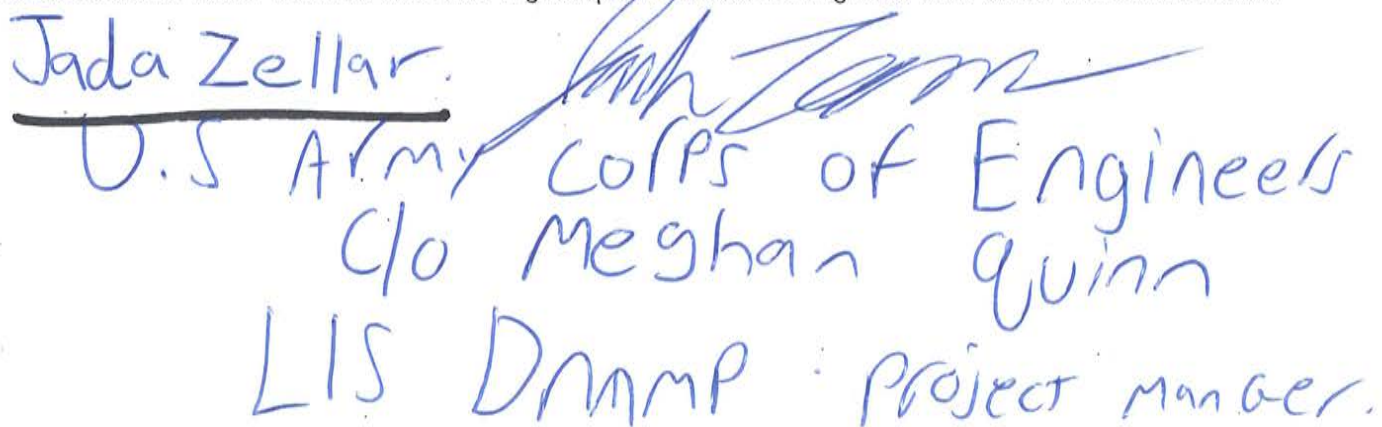 Jada Zellar.
U.S Army Corps of Engineers
C/o Meghan Quinn
LIS DMMMP : Project Manager.